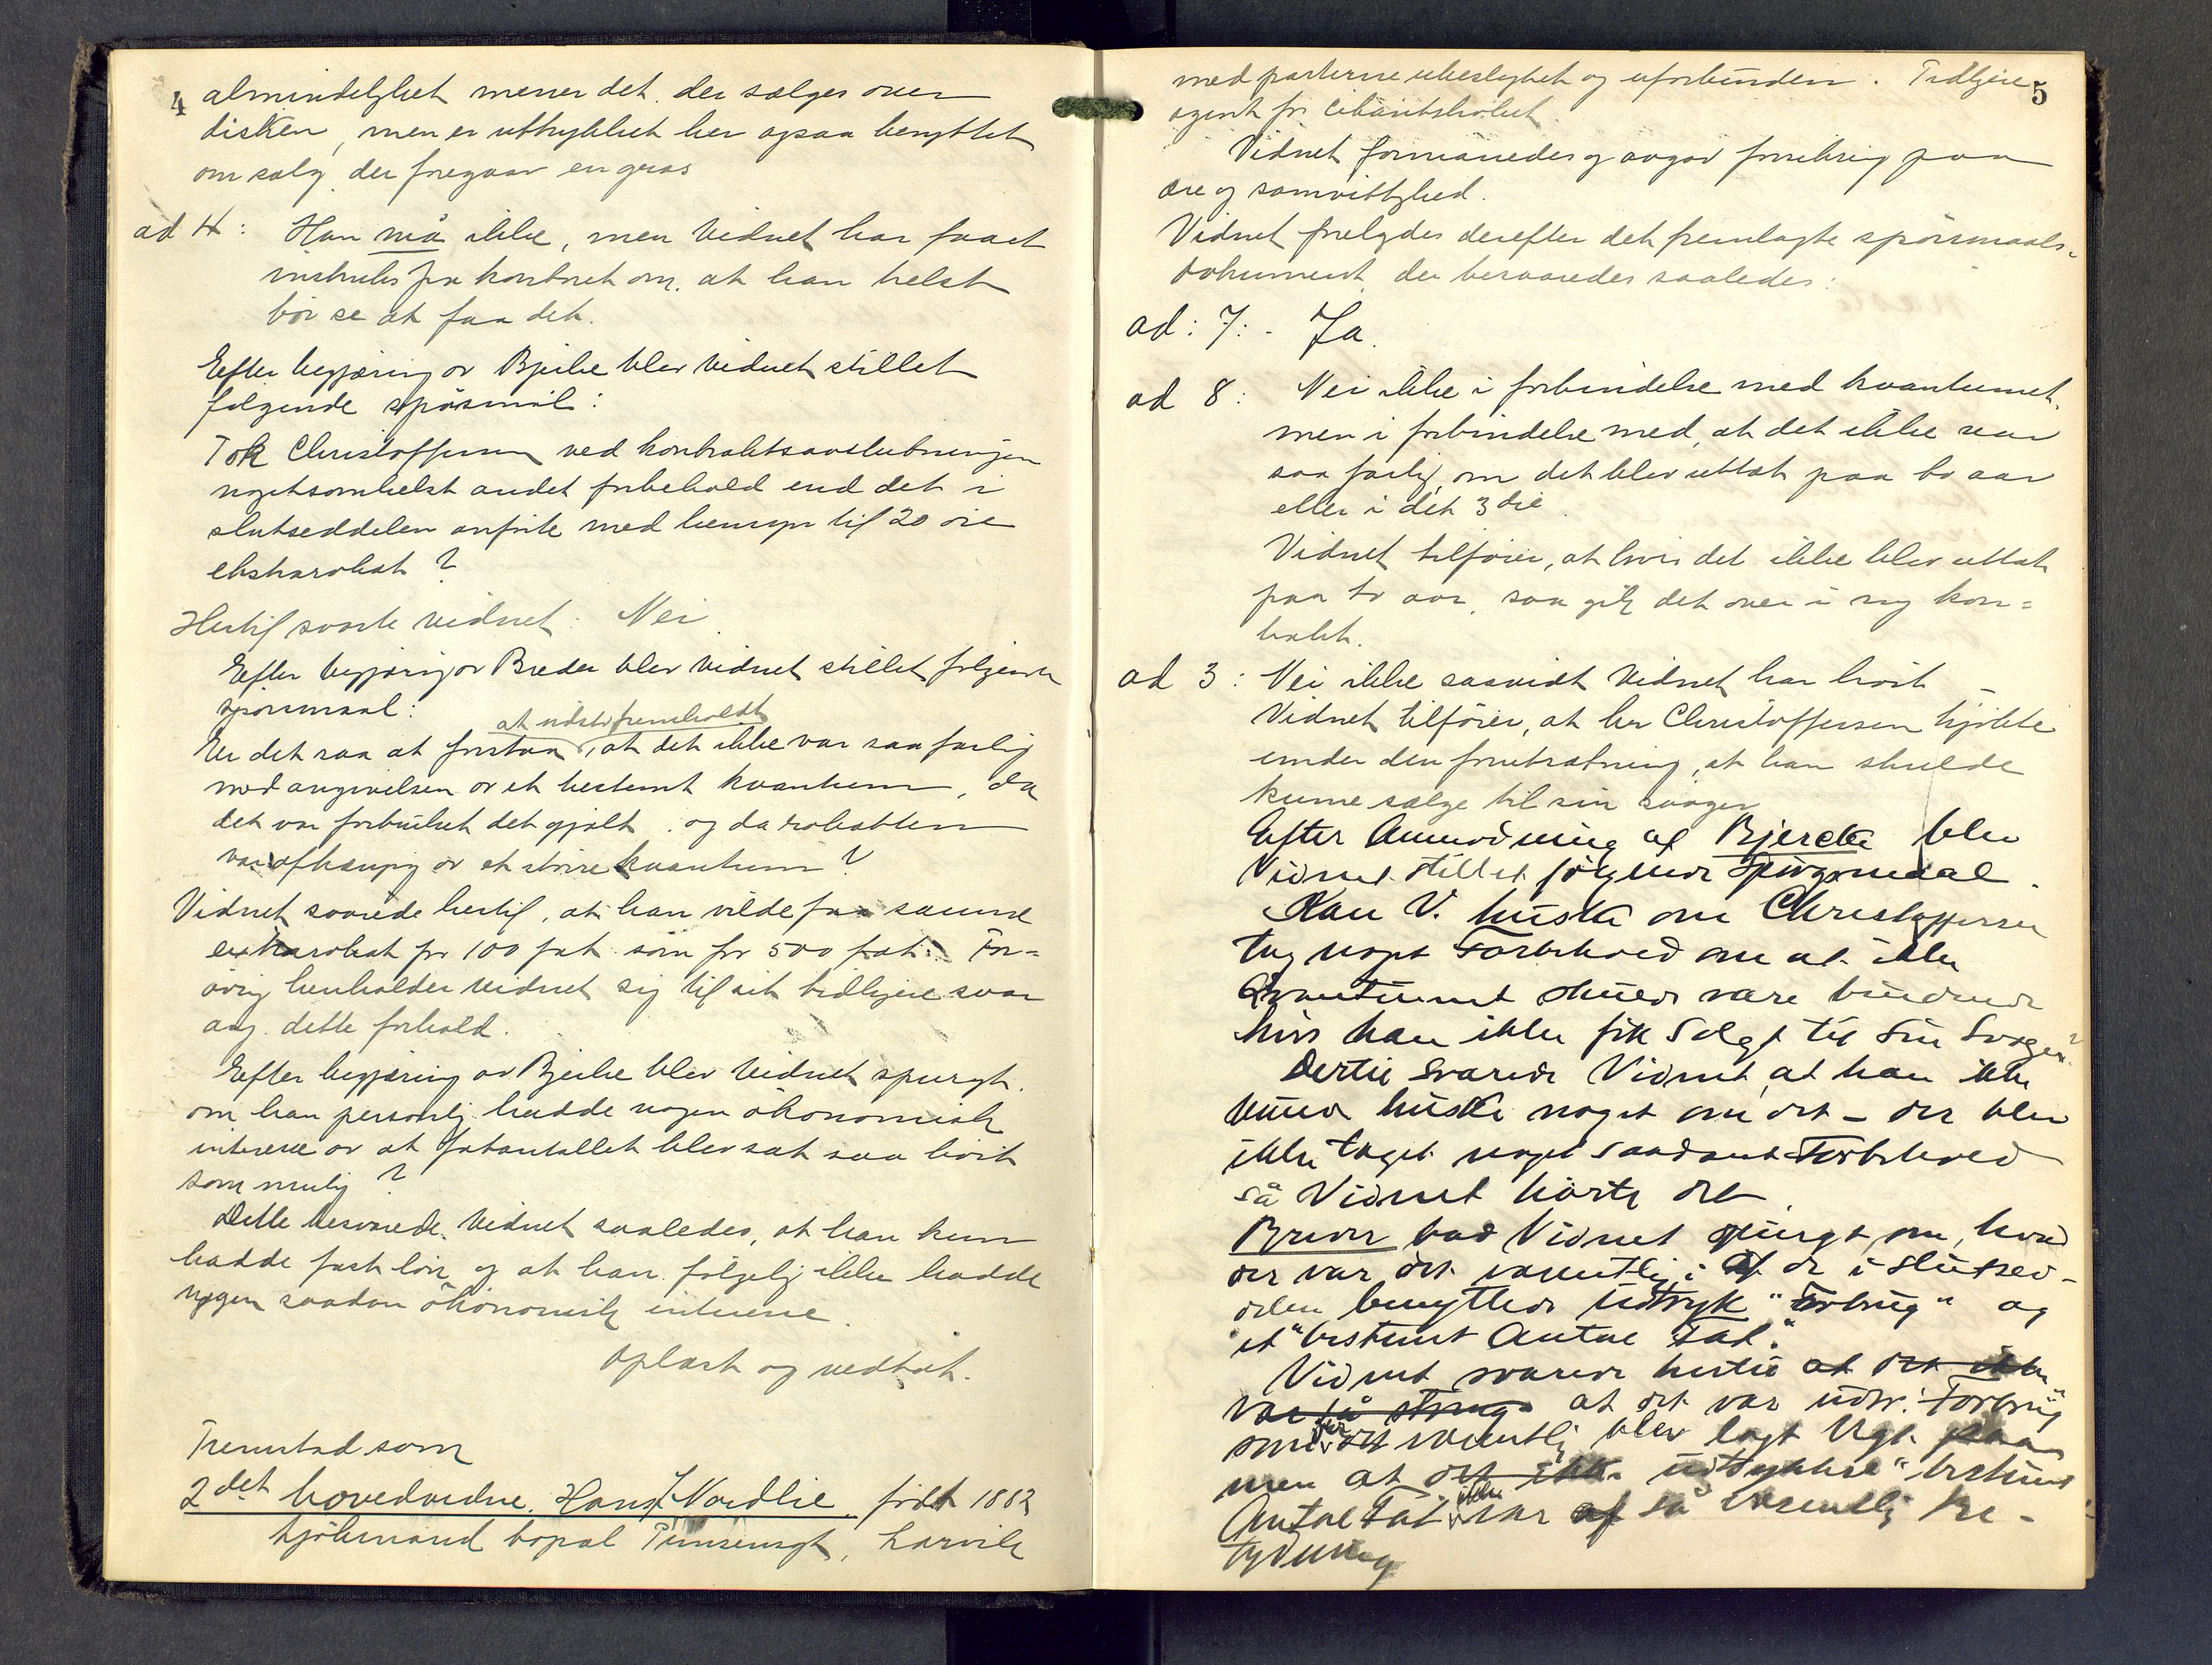 4
almindelighet mener det der sælges over
disken, men er uttrykket her ogsaa benyttet
om salg der foregaar en gros
ad 4: Han må ikke, men vidnet har faaet
instruks fra kontoret om, at han helst
bör se at faa det.
Efter begjæring av Bjerke blev vidnet stillet
følgende spösmål:
Tok Christoffersen ved kontraktsavslutningen
nogetsomhelst andet forbehold end det i
slutseddelen anförte med hensyn til 20 öre
ekstrarabat?
Hertil svarte vidnet: Nei.
Efter begjæring av Breder blev vidnet stillet følgende
spörsmaal:
at vidnet fremholdt
Er det saa at forstaa, at det ikke var saa farlig
med angivelsen av et bestemt kvantum, da
det var forbruket det gjaldt og da rabatten
var afhængig av et större kvantum?
Vidnet svarede hertil, at han vilde faa samme
extrarabat for 100 fat som for 500 fat. For=
övrig henholder vidnet sig til sit tidligere svar
ang. dette forhold.
Efter begjæring av Bjerke blev vidnet spurgt,
om han personlig hadde nogen ökonomisk
interesse av at fatantallet blev sat saa höit
som mulig?
Dette besvarede vidnet saaledes, at han kun
hadde fast lön og at han følgelig ikke hadde
nogen saadan ökonomisk interesse.
Oplæst og vedtat.
Fremstod som
2det hovedvidne. Hans J. Nordlie født 1882
kjöbmand bopæl Larvik
5
med parterne ubeslegtet og uforbunden. Tidligere
agent for
Vidnet formanedes og avgav forsikring paa
ære og samvittighed.
Vidnet forelagdes derefter det fremlagte spörsmaals-
dokument, der besvaredes saaledes:
ad: 7: - Ja.
ad 8: Nei ikke i forbindelse med kvantumet,
men i forbindelse med, at det ikke var
saa farlig, om det blev uttat paa to aar
eller i det 3die.
Vidnet tilföier, at hvis det ikke blev uttat
paa to aar, saa gik det over i ny kon=
trakt.
ad 3: Nei ikke saavidt vidnet har hört –
Vidnet tilföier, at hr Christoffersen kjöbte
under den forutsætning, at han skulde
kunne sælge til sin svoger
Efter Anmodning af Bjercke blev
Vidnet stillet följende Spörgsmaal.
Kan V. huske om Christoffersen
tog noget Forbehold om at ikke
Qvantumet skulde være bindende
hvis han ikke fik Solgt til sin Svoger?
Dertil Svarede Vidnet at han ikke
kunde huske noget om det – der blev
ikke taget noget saadant Forbehold
så Vidnet hörte det
Breder bad Vidnet spurgt om, hvad
der var det væsentlig i af de i Slutsed-
delen benyttede Udtryk "Forbrug" og
et "bestemt Antal Fat."
Vidnet svarede hertil at det ikke
var så streng at det var udtr. "Forbrug"
som der væsentlig blev lagt Vægt paa
men at det ikke udtrykket "bestemt
Antal Fat" ikke var af så væsentlig Be-
tydning